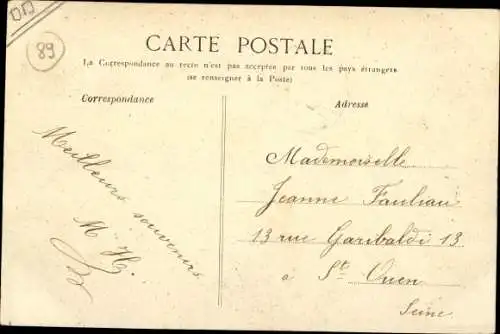 89
CARTE POSTALE
La Correspondance au recto n'est pas acceptée par tous les pays étrangers
(se renseigner à la Poste)
Correspondance
Adresse
Meilleurs souvenirs
M H
Mademoiselle
Jeanne
13 rue Garibaldi 13
a St Ouen
Seine